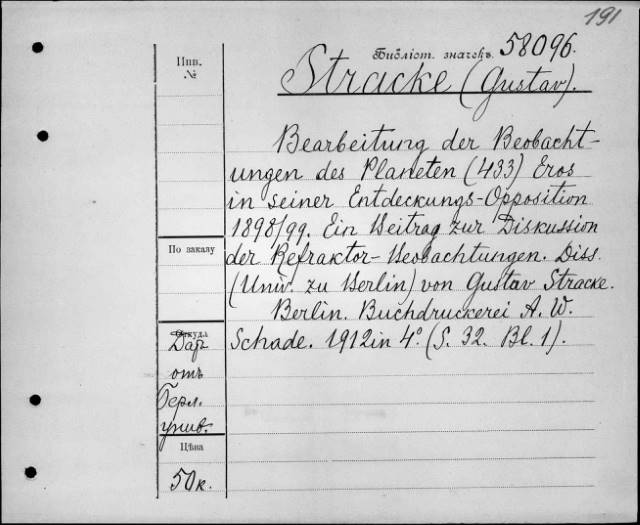 191
Библіот. значекъ. 58096.
Инв.
№
Stracke (Gustav).
Bearbeitung der Beobacht-
ungen des Planeten (433) Eros
in seiner Entdeckungs-Opposition
1898/99. Ein Beitrag zur Diskussion
По заказу
der Refraktor-Beobachtungen. Diss.
(Univ. zu Berlin) von Gustav Stracke.
Berlin. Buchdruckerei A. W.
Откуда
Schade. 1912 in 4° (S. 32. Bl. 1).
Даръ
отъ
Берл.
унив.
Цѣна
50 к.